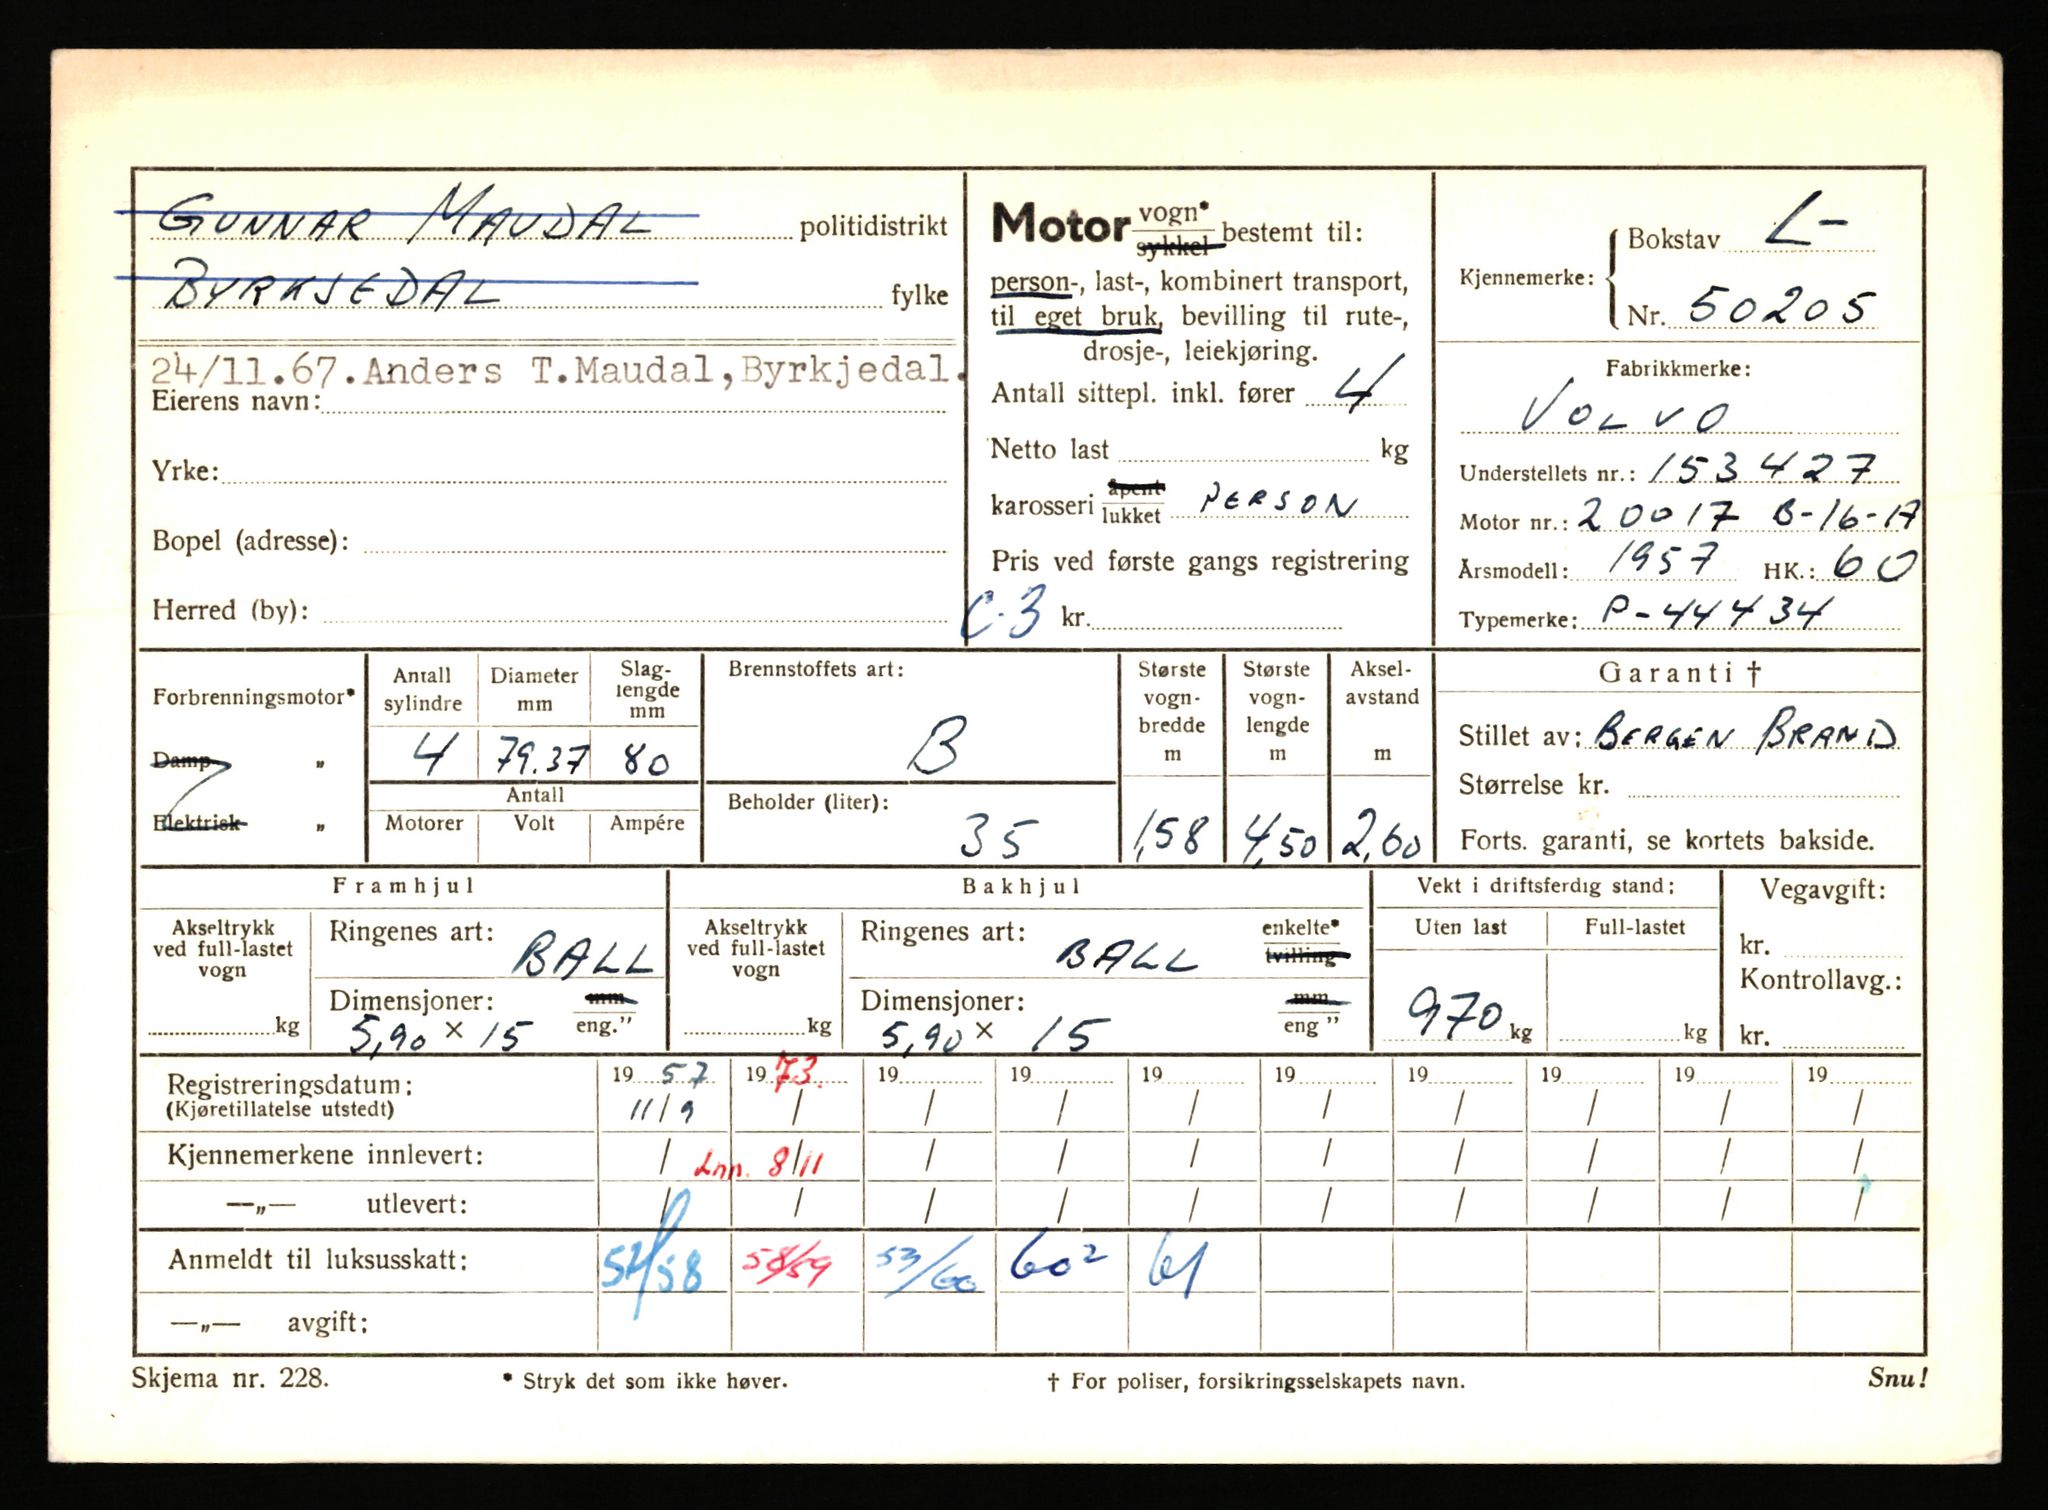 GUNNAR MAUDAL politidistrikt
BYRKJEDAL fylke
24/11.67.Anders T.Maudal,Byrkjedal.
Eierens navn:
Yrke:
Bopel (adresse):
Herred (by):
Motor vogn* sykkel bestemt til:
person-, last-, kombinert transport,
til eget bruk, bevilling til rute-,
drosje-, leiekjøring.
Antall sittepl. inkl. fører 4
Netto last kg
karosseri åpent lukket PERSON
Pris ved første gangs registrering
C-3 kr.
Kjennemerke: Bokstav L-
Nr. 50205
Fabrikkmerke:
VOLVO
Understellets nr.: 153427
Motor nr.: 20017 B-16-A
Årsmodell: 1957 HK.: 60
Typemerke: P-44434
Forbrenningsmotor*
Damp „
Elektrisk „
Antall sylindre
4
Diameter mm
79.37
Slaglengde mm
80
Antall
Motorer Volt Ampére
Brennstoffets art:
B
Beholder (liter):
35
Største vognbredde m
1,58
Største vognlengde m
4,50
Akselavstand m
2,60
Garanti †
Stillet av: BERGEN BRAND
Størrelse kr.
Forts. garanti, se kortets bakside.
Framhjul
Akseltrykk ved full-lastet vogn
kg
Ringenes art: BALL
Dimensjoner: mm eng."
5,90 × 15
Bakhjul
Akseltrykk ved full-lastet vogn
kg
Ringenes art: BALL enkelte* tvilling
Dimensjoner: mm eng "
5,90 × 15
Vekt i driftsferdig stand:
Uten last Full-lastet
970 kg kg
Vegavgift:
kr.
Kontrollavg.:
kr.
Registreringsdatum: 19 57 19 73. 19 19 19 19 19 19 19 19
(Kjøretillatelse utstedt) 11/9 / / / / / / / / /
Kjennemerkene innlevert: / Inn. 8/11 / / / / / / / /
—„— utlevert: / / / / / / / / / /
Anmeldt til luksusskatt: 57/58 58/59 53/60 60² 61
—„— avgift:
Skjema nr. 228. * Stryk det som ikke høver. † For poliser, forsikringsselskapets navn. Snu!